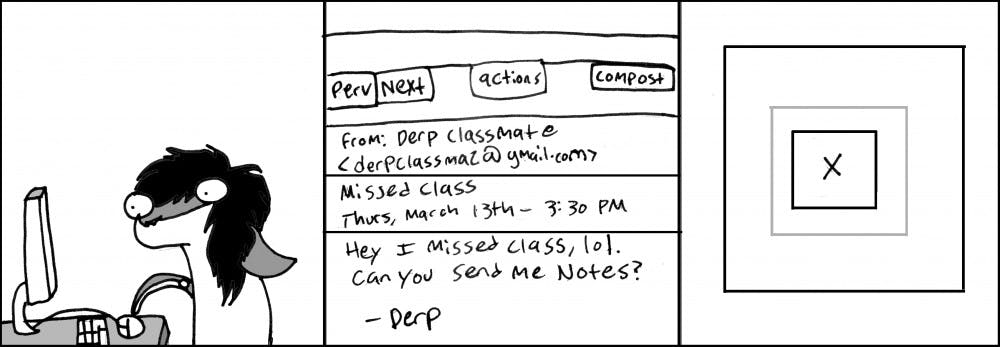 Perv Next actions compost
From: Derp Classmate
<derpclassmaz@gmail.com>
Missed Class
Thurs, March 13th - 3:30 PM
Hey I missed class, lol.
Can you send me Notes?
- Derp
X